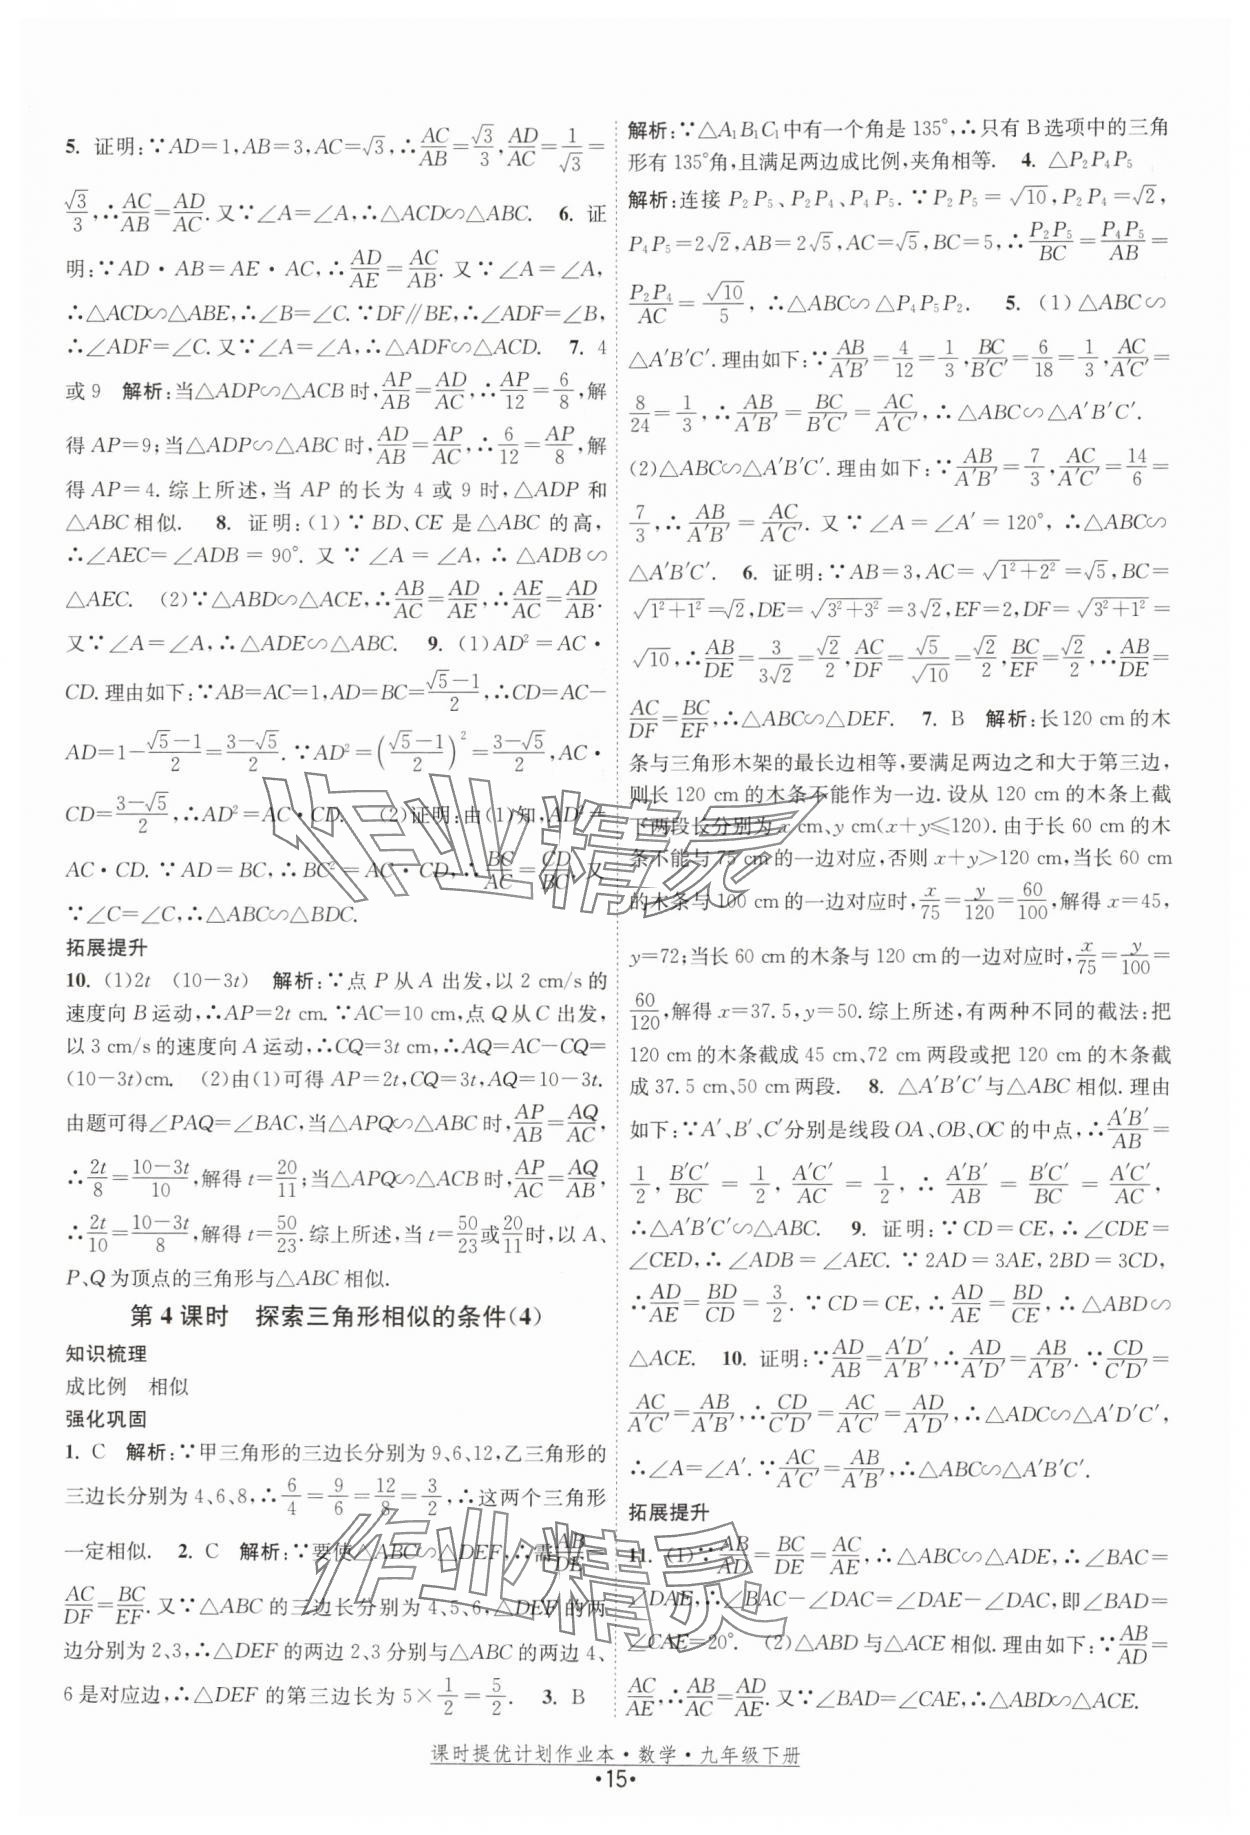 5. 证明:∵AD=1,AB=3,AC=√3,∴AC/AB=√3/3,AD/AC=1/√3=
√3/3,∴AC/AB=AD/AC.又∵∠A=∠A,∴△ACD∽△ABC. 6. 证
明:∵AD·AB=AE·AC,∴AD/AE=AC/AB.又∵∠A=∠A,
∴△ACD∽△ABE,∴∠B=∠C.∵DF∥BE,∴∠ADF=∠B,
∴∠ADF=∠C.又∵∠A=∠A,∴△ADF∽△ACD. 7. 4
或9 解析:当△ADP∽△ACB时,AP/AB=AD/AC,∴AP/12=6/8,解
得AP=9;当△ADP∽△ABC时,AD/AB=AP/AC,∴6/12=AP/8,解
得AP=4.综上所述,当AP的长为4或9时,△ADP和
△ABC相似. 8. 证明:(1)∵BD、CE是△ABC的高,
∴∠AEC=∠ADB=90°.又∵∠A=∠A,∴△ADB∽
△AEC. (2)∵△ABD∽△ACE,∴AB/AC=AD/AE,∴AE/AC=AD/AB.
又∵∠A=∠A,∴△ADE∽△ABC. 9. (1)AD²=AC·
CD.理由如下:∵AB=AC=1,AD=BC=(√5-1)/2,∴CD=AC-
AD=1-(√5-1)/2=(3-√5)/2.∵AD²=((√5-1)/2)²=(3-√5)/2,AC·
CD=(3-√5)/2,∴AD²=AC·CD. (2)证明:由(1)知,AD²=
AC·CD.∵AD=BC,∴BC²=AC·CD,∴BC/AC=CD/BC.又
∵∠C=∠C,∴△ABC∽△BDC.
拓展提升
10. (1)2t (10-3t) 解析:∵点P从A出发,以2 cm/s的
速度向B运动,∴AP=2t cm.∵AC=10 cm,点Q从C出发,
以3 cm/s的速度向A运动,∴CQ=3t cm,∴AQ=AC-CQ=
(10-3t)cm. (2)由(1)可得AP=2t,CQ=3t,AQ=10-3t.
由题可得∠PAQ=∠BAC,当△APQ∽△ABC时,AP/AB=AQ/AC,
∴2t/8=(10-3t)/10,解得t=20/11;当△APQ∽△ACB时,AP/AC=AQ/AB,
∴2t/10=(10-3t)/8,解得t=50/23.综上所述,当t=50/23或20/11时,以A、
P、Q为顶点的三角形与△ABC相似.
第4课时 探索三角形相似的条件(4)
知识梳理
成比例 相似
强化巩固
1. C 解析:∵甲三角形的三边长分别为9、6、12,乙三角形的
三边长分别为4、6、8,∴6/4=9/6=12/8=3/2,∴这两个三角形
一定相似. 2. C 解析:∵要使△ABC∽△DEF,∴需AB/DE=
AC/DF=BC/EF.又∵△ABC的三边长分别为4、5、6,△DEF的两
边分别为2、3,∴△DEF的两边2、3分别与△ABC的两边4、
6是对应边,∴△DEF的第三边长为5×1/2=5/2. 3. B
解析:∵△A₁B₁C₁中有一个角是135°,∴只有B选项中的三角
形有135°角,且满足两边成比例,夹角相等. 4. △P₂P₄P₅
解析:连接P₂P₅、P₂P₄、P₄P₅.∵P₂P₅=√10,P₂P₄=√2,
P₄P₅=2√2,AB=2√5,AC=√5,BC=5,∴P₂P₅/BC=P₄P₅/AB=
P₂P₄/AC=√10/5,∴△ABC∽△P₄P₅P₂. 5. (1)△ABC∽
△A′B′C′.理由如下:∵AB/A′B′=4/12=1/3,BC/B′C′=6/18=1/3,AC/A′C′=
8/24=1/3,∴AB/A′B′=BC/B′C′=AC/A′C′,∴△ABC∽△A′B′C′.
(2)△ABC∽△A′B′C′.理由如下:∵AB/A′B′=7/3,AC/A′C′=14/6=
7/3,∴AB/A′B′=AC/A′C′.又∵∠A=∠A′=120°,∴△ABC∽
△A′B′C′. 6. 证明:∵AB=3,AC=√(1²+2²)=√5,BC=
√(1²+1²)=√2,DE=√(3²+3²)=3√2,EF=2,DF=√(3²+1²)=
√10,∴AB/DE=3/(3√2)=√2/2,AC/DF=√5/√10=√2/2,BC/EF=√2/2,∴AB/DE=
AC/DF=BC/EF,∴△ABC∽△DEF. 7. B 解析:长120 cm的木
条与三角形木架的最长边相等,要满足两边之和大于第三边,
则长120 cm的木条不能作为一边.设从120 cm的木条上截
下两段长分别为x cm、y cm(x+y≤120).由于长60 cm的木
条不能与75 cm的一边对应,否则x+y>120 cm,当长60 cm
的木条与100 cm的一边对应时,x/75=y/120=60/100,解得x=45,
y=72;当长60 cm的木条与120 cm的一边对应时,x/75=y/100=
60/120,解得x=37.5,y=50.综上所述,有两种不同的截法:把
120 cm的木条截成45 cm、72 cm两段或把120 cm的木条截
成37.5 cm、50 cm两段. 8. △A′B′C′与△ABC相似.理由
如下:∵A′、B′、C′分别是线段OA、OB、OC的中点,∴A′B′/AB=
1/2,B′C′/BC=1/2,A′C′/AC=1/2,∴A′B′/AB=B′C′/BC=A′C′/AC,
∴△A′B′C′∽△ABC. 9. 证明:∵CD=CE,∴∠CDE=
∠CED,∴∠ADB=∠AEC.∵2AD=3AE,2BD=3CD,
∴AD/AE=BD/CD=3/2.∵CD=CE,∴AD/AE=BD/CE,∴△ABD∽
△ACE. 10. 证明:∵AD/AB=A′D′/A′B′,∴AD/A′D′=AB/A′B′.∵CD/C′D′=
AC/A′C′=AB/A′B′,∴CD/C′D′=AC/A′C′=AD/A′D′,∴△ADC∽△A′D′C′,
∴∠A=∠A′.∵AC/A′C′=AB/A′B′,∴△ABC∽△A′B′C′.
拓展提升
11. (1)∵AB/AD=BC/DE=AC/AE,∴△ABC∽△ADE,∴∠BAC=
∠DAE,∴∠BAC-∠DAC=∠DAE-∠DAC,即∠BAD=
∠CAE=20°. (2)△ABD与△ACE相似.理由如下:∵AB/AD=
AC/AE,∴AB/AC=AD/AE.又∵∠BAD=∠CAE,∴△ABD∽△ACE.
课时提优计划作业本·数学·九年级下册
·15·
作业精灵
作业精灵